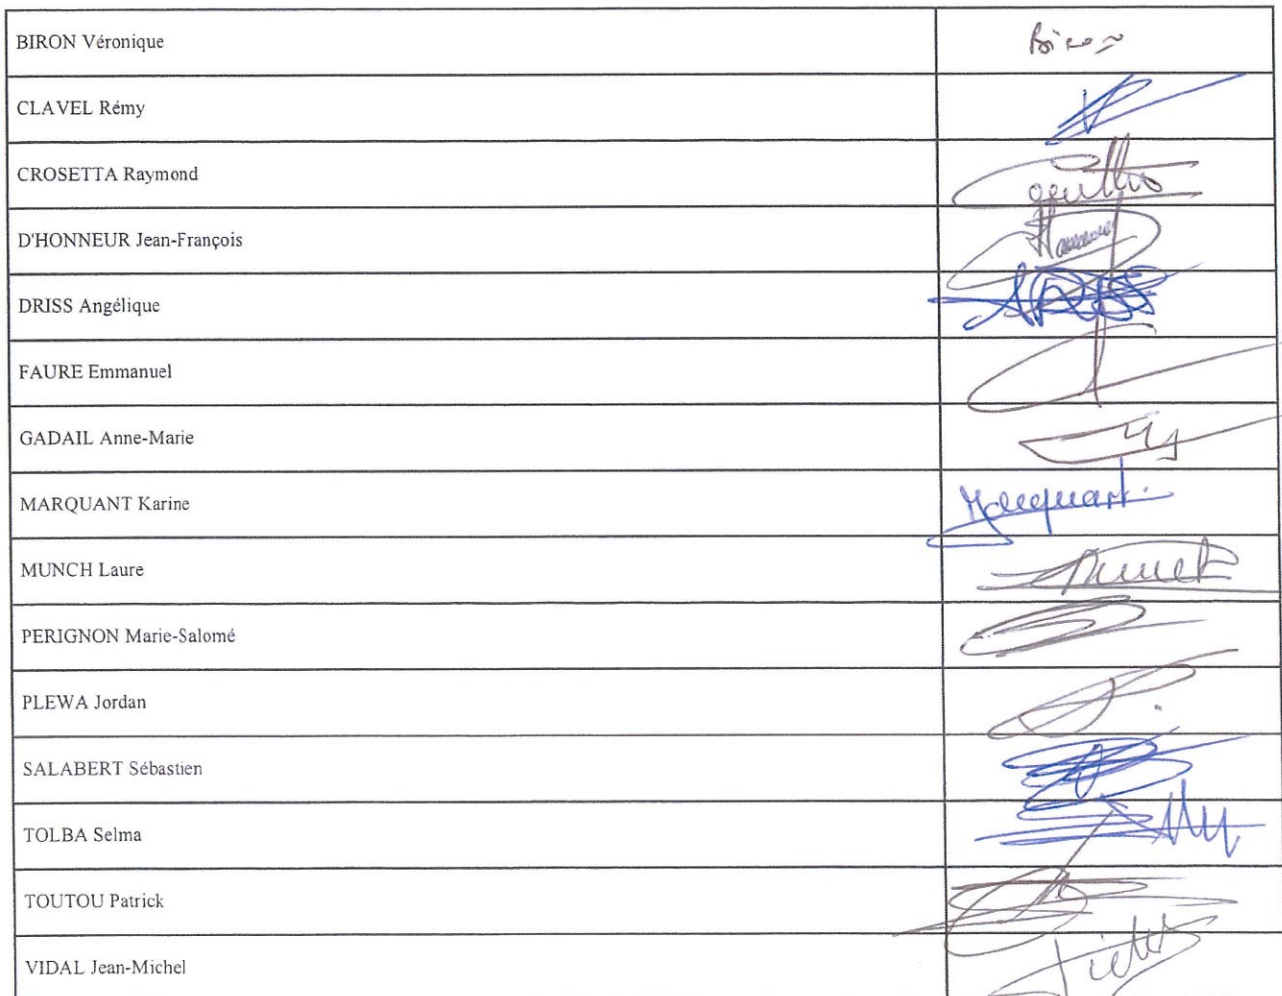 BIRON Véronique Biron
CLAVEL Rémy
CROSETTA Raymond
D'HONNEUR Jean-François
DRISS Angélique
FAURE Emmanuel
GADAIL Anne-Marie
MARQUANT Karine
MUNCH Laure
PERIGNON Marie-Salomé
PLEWA Jordan
SALABERT Sébastien
TOLBA Selma
TOUTOU Patrick
VIDAL Jean-Michel